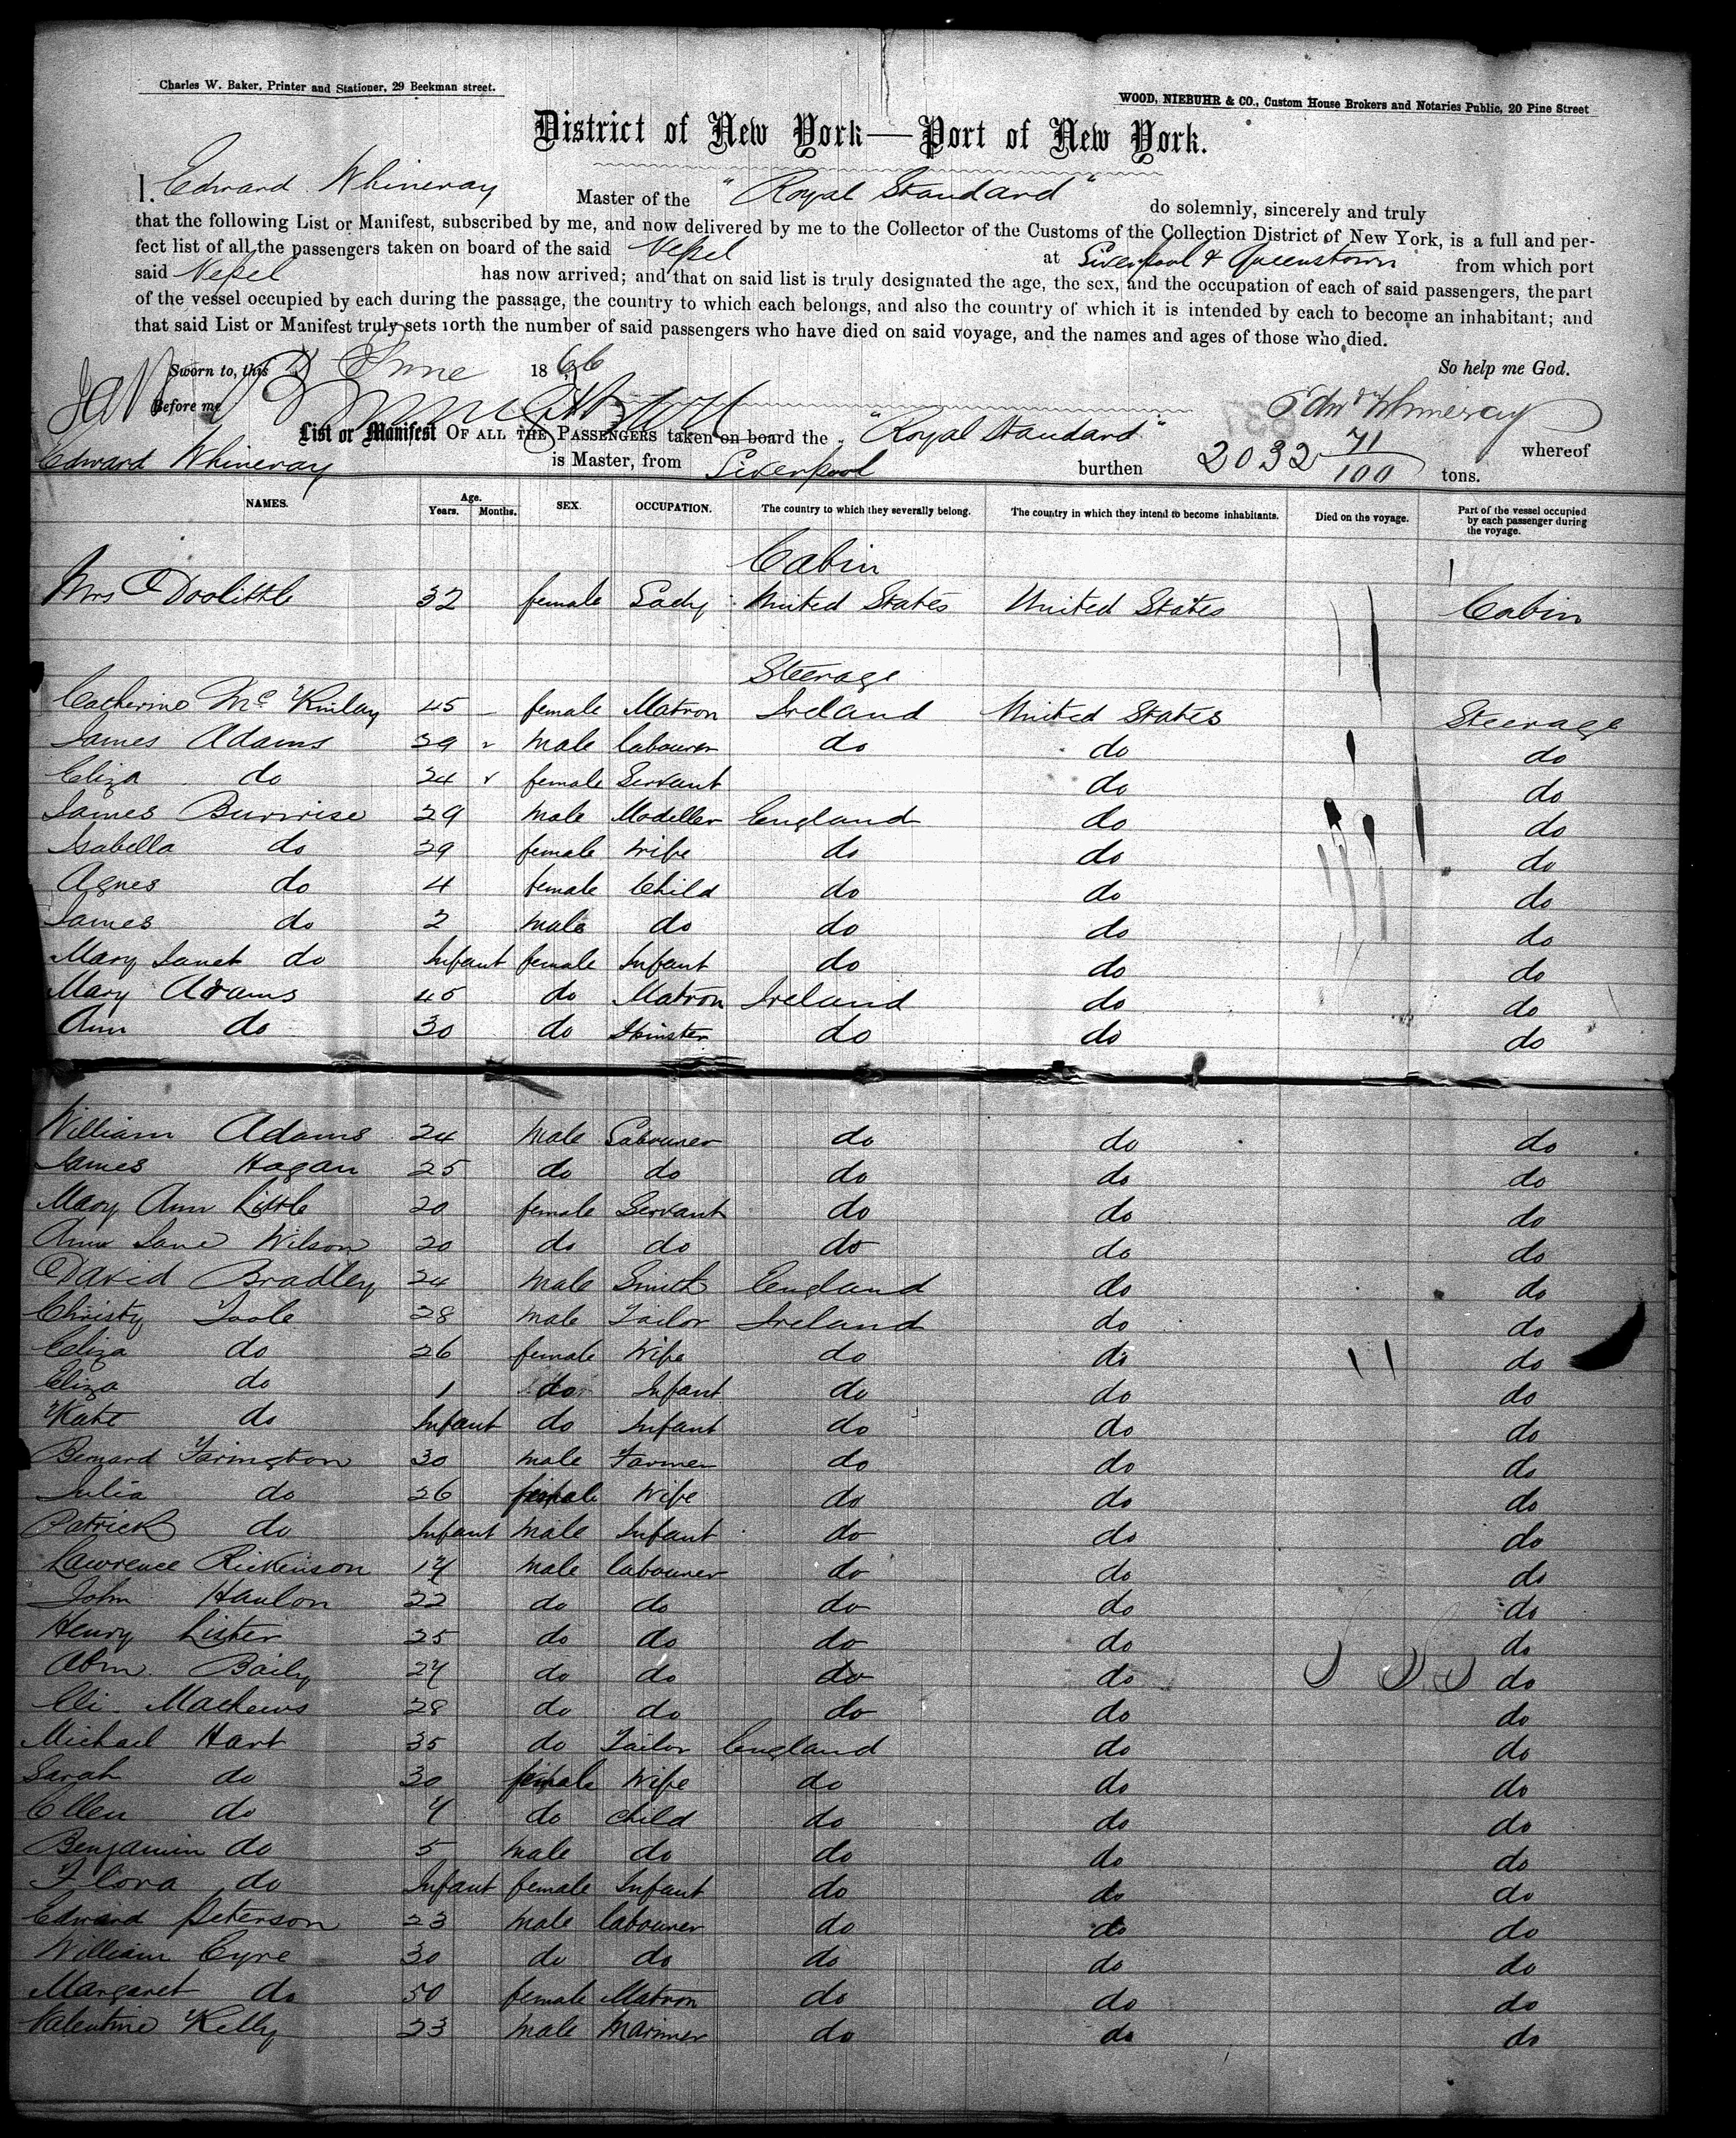 Charles W. Baker, Printer and Stationer, 29 Beekman street.
WOOD, NIEBUHR & CO., Custom House Brokers and Notaries Public, 20 Pine Street
District of New York—Port of New York.
I, Edward Whineray Master of the "Royal Standard" do solemnly, sincerely and truly
that the following List or Manifest, subscribed by me, and now delivered by me to the Collector of the Customs of the Collection District of New York, is a full and per-
fect list of all the passengers taken on board of the said Vessel at Liverpool & Queenstown from which port
said Vessel has now arrived; and that on said list is truly designated the age, the sex, and the occupation of each of said passengers, the part
of the vessel occupied by each during the passage, the country to which each belongs, and also the country of which it is intended by each to become an inhabitant; and
that said List or Manifest truly sets forth the number of said passengers who have died on said voyage, and the names and ages of those who died.
Sworn to, this June 1866 So help me God.
Before me Edwd Whineray
List or Manifest OF ALL THE PASSENGERS taken on board the "Royal Standard" whereof
Edward Whineray is Master, from Liverpool burthen 2032 71/100 tons.
NAMES. Age. Years. Months. SEX. OCCUPATION. The country to which they severally belong. The country in which they intend to become inhabitants. Died on the voyage. Part of the vessel occupied by each passenger during the voyage.
Cabin
Mrs Doolittle 32 female Lady United States United States Cabin
Steerage
Catherine Mc Kinlay 45 female Matron Ireland United States Steerage
James Adams 29 male labourer do do do
Eliza do 24 female Servant do do
James Burwise 29 male Modeller England do do
Isabella do 29 female wife do do do
Agnes do 4 female Child do do do
James do 2 male do do do do
Mary Janet do Infant female Infant do do do
Mary Adams 45 do Matron Ireland do do
Ann do 30 do Spinster do do do
William Adams 24 male Labourer do do do
James Hagan 25 do do do do do
Mary Ann Little 20 female Servant do do do
Ann Jane Wilson 20 do do do do do
David Bradley 24 male Smith England do do
Christy Toole 28 male Tailor Ireland do do
Eliza do 26 female Wife do do do
Eliza do 1 do Infant do do do
Kate do Infant do Infant do do do
Bernard Farington 30 male Farmer do do do
Julia do 26 female Wife do do do
Patrick do Infant male Infant do do do
Lawrence Rickenson 17 male labourer do do do
John Hanlon 22 do do do do do
Henry Lister 25 do do do do do
Abm Baily 27 do do do do do
Eli Mathews 28 do do do do do
Michael Hart 35 do Tailor England do do
Sarah do 30 female Wife do do do
Ellen do 7 do child do do do
Benjamin do 5 male do do do do
Flora do Infant female Infant do do do
Edward Peterson 23 male labourer do do do
William Eyre 30 do do do do do
Margaret do 50 female Matron do do do
Valentine Kelly 23 male Mariner do do do